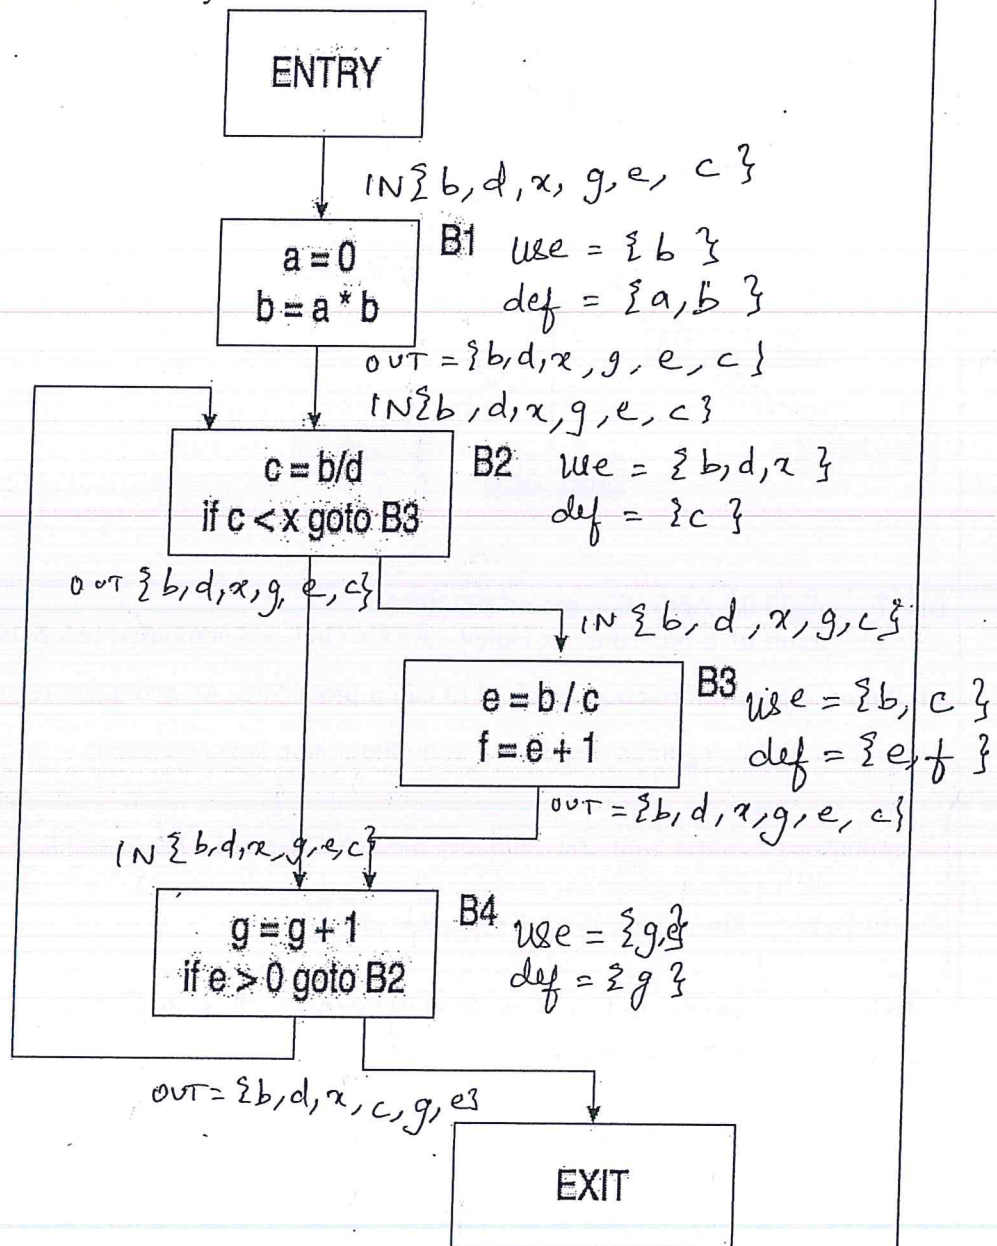 ENTRY
IN{b, d, x, g, e, c}
a = 0
b = a * b
B1
use = {b}
def = {a, b}
OUT = {b, d, x, g, e, c}
IN{b, d, x, g, e, c}
c = b/d
if c < x goto B3
B2
use = {b, d, x}
def = {c}
OUT {b, d, x, g, e, c}
IN {b, d, x, g, c}
e = b / c
f = e + 1
B3
use = {b, c}
def = {e, f}
OUT = {b, d, x, g, e, c}
IN {b, d, x, g, e, c}
g = g + 1
if e > 0 goto B2
B4
use = {g, e}
def = {g}
OUT = {b, d, x, c, g, e}
EXIT